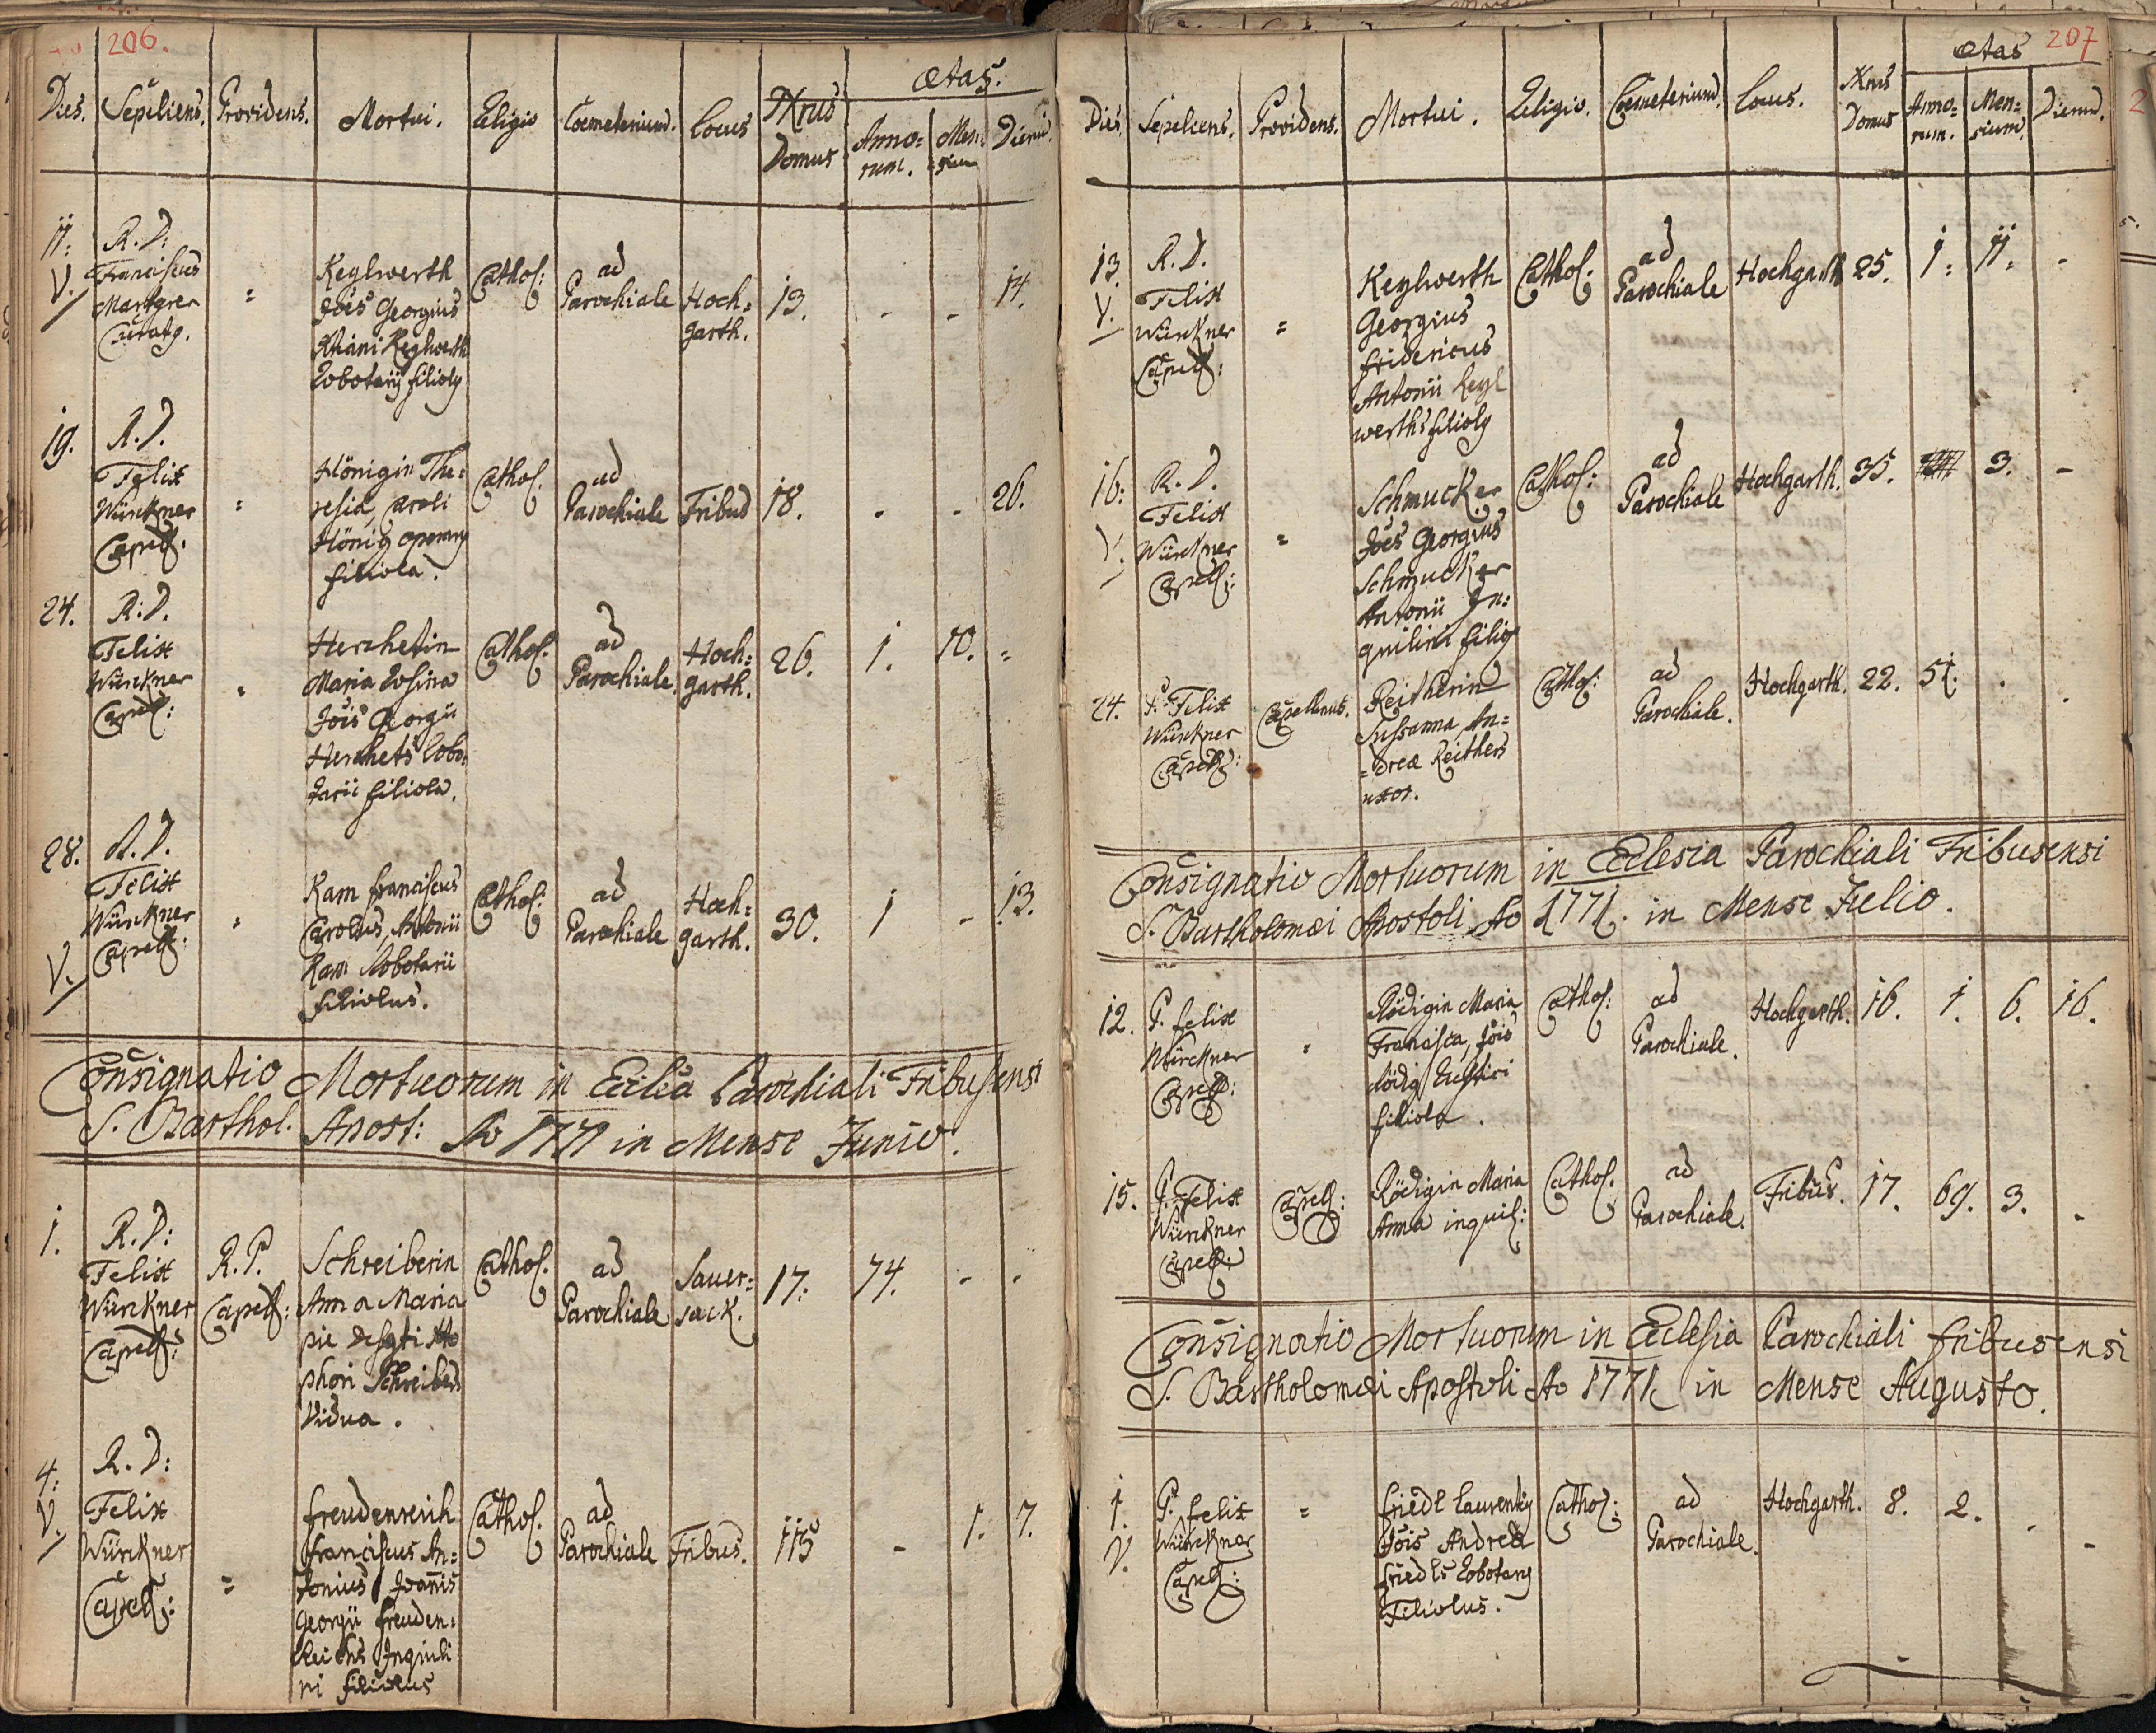 206.
Dies. Sepeliens. Providens. Mortui. Religio Coemeterium. Locus Nrus Domus Ætas. Annorum. Mensium Dierum.
11. R. D: Franciscus
V. Curatg.
=
Keglwerth
Jões Georgius
Xtiani Keglwerth
Robotarij filiolg
Cathol:
ad
Parochiale
Hoch=
garth.
13. - - 14.
19. R. D.
Felix
Würckner
Capell.
=
Hönigin The=
resia, Caroli
Hönig operarij
filiola.
Cathol.
ad
Parochiale
Tribus
18. - - 26.
24. R. D.
Felix
Würckner
Capell:
=
Herchetin
Maria Rosina
Jöis Georgii
Herchets Robo=
tarii filiola.
Cathol.
ad
Parochiale.
Hoch=
garth.
26. 1. 10. =
28. R. D.
Felix
Würckner
V. Capell:
=
Kam Franciscus
Carolus, Antonii
Kam Robotarii
filiolus.
Cathol.
ad
Parochiale
Hoch=
garth.
30. 1 - 13.
Consignatio Mortuorum in Ecclia Parochiali Tribusensi
S. Barthol. Apost: Ao 1771 in Mense Junio.
1. R. D:
Felix
Würckner
Capell:
R. P.
Capell:
Schreiberin
Anna Maria
pie Xto
phori Schreibers
Vidua.
Cathol.
ad
Parochiale
Sauer=
sack.
17. 74. - -
4: R. D:
V. Felix
Würckner
Capell:
=
Freudenreich
Franciscus An=
tonius Joannis
Georgii Freuden=
Reichs Inquili
ni filiolus
Cathol.
ad
Parochiale
Tribus.
115 - 1. 7.
207
Dies. Sepeliens. Providens. Mortui. Religio. Coemeterium. Locus. Nrus Domus Ætas Annorum. Mensium. Dierum.
13. R. D.
V. Felix
Würckner
Capell:
=
Keglwerth
Georgius
Fridericus
Antonii Kegl
werths filiolg
Cathol.
ad
Parochiale
Hochgarth
25. 1. 11. -
16: R. D.
Felix
V. Würckner
Capell:
=
Schmucker
Jões Georgius
Schmucker
Antonii In=
quilini filig
Cathol:
ad
Parochiale
Hochgarth.
35. 3. -
24. P. Felix
Würckner
Capell:
Capellanus.
Reitherin
Sussanna An=
=dreæ Reithers
uxor.
Cathol:
ad
Parochiale.
Hochgarth.
22. 51. . .
Consignatio Mortuorum in Ecclesia Parochiali Tribusensi
S. Bartholomæi Apostoli Ao 1771. in Mense Julio.
12. P. Felix
Würckner
Capell:
=
Rödigin Maria
Francisca, Jöis
Rödig Rustici
filiola.
Cathol:
ad
Parochiale.
Hochgarth.
16. 1. 6. 16.
15. P. Felix
Würckner
Capell:
Capell:
Rödigin Maria
Anna inquil:
Cathol.
ad
Parochiale.
Tribus.
17. 69. 3. -
Consignatio Mortuorum in Ecclesia Parochiali Tribusensi
S. Bartholomæi Apostoli Ao 1771 in Mense Augusto.
1. P. Felix
V. Würckner
Capell:
=
Friedl Laurentig
Jöis Andreæ
Friedls Robotarij
Filiolus.
Cathol:
ad
Parochiale.
Hochgarth.
8. 2. - -